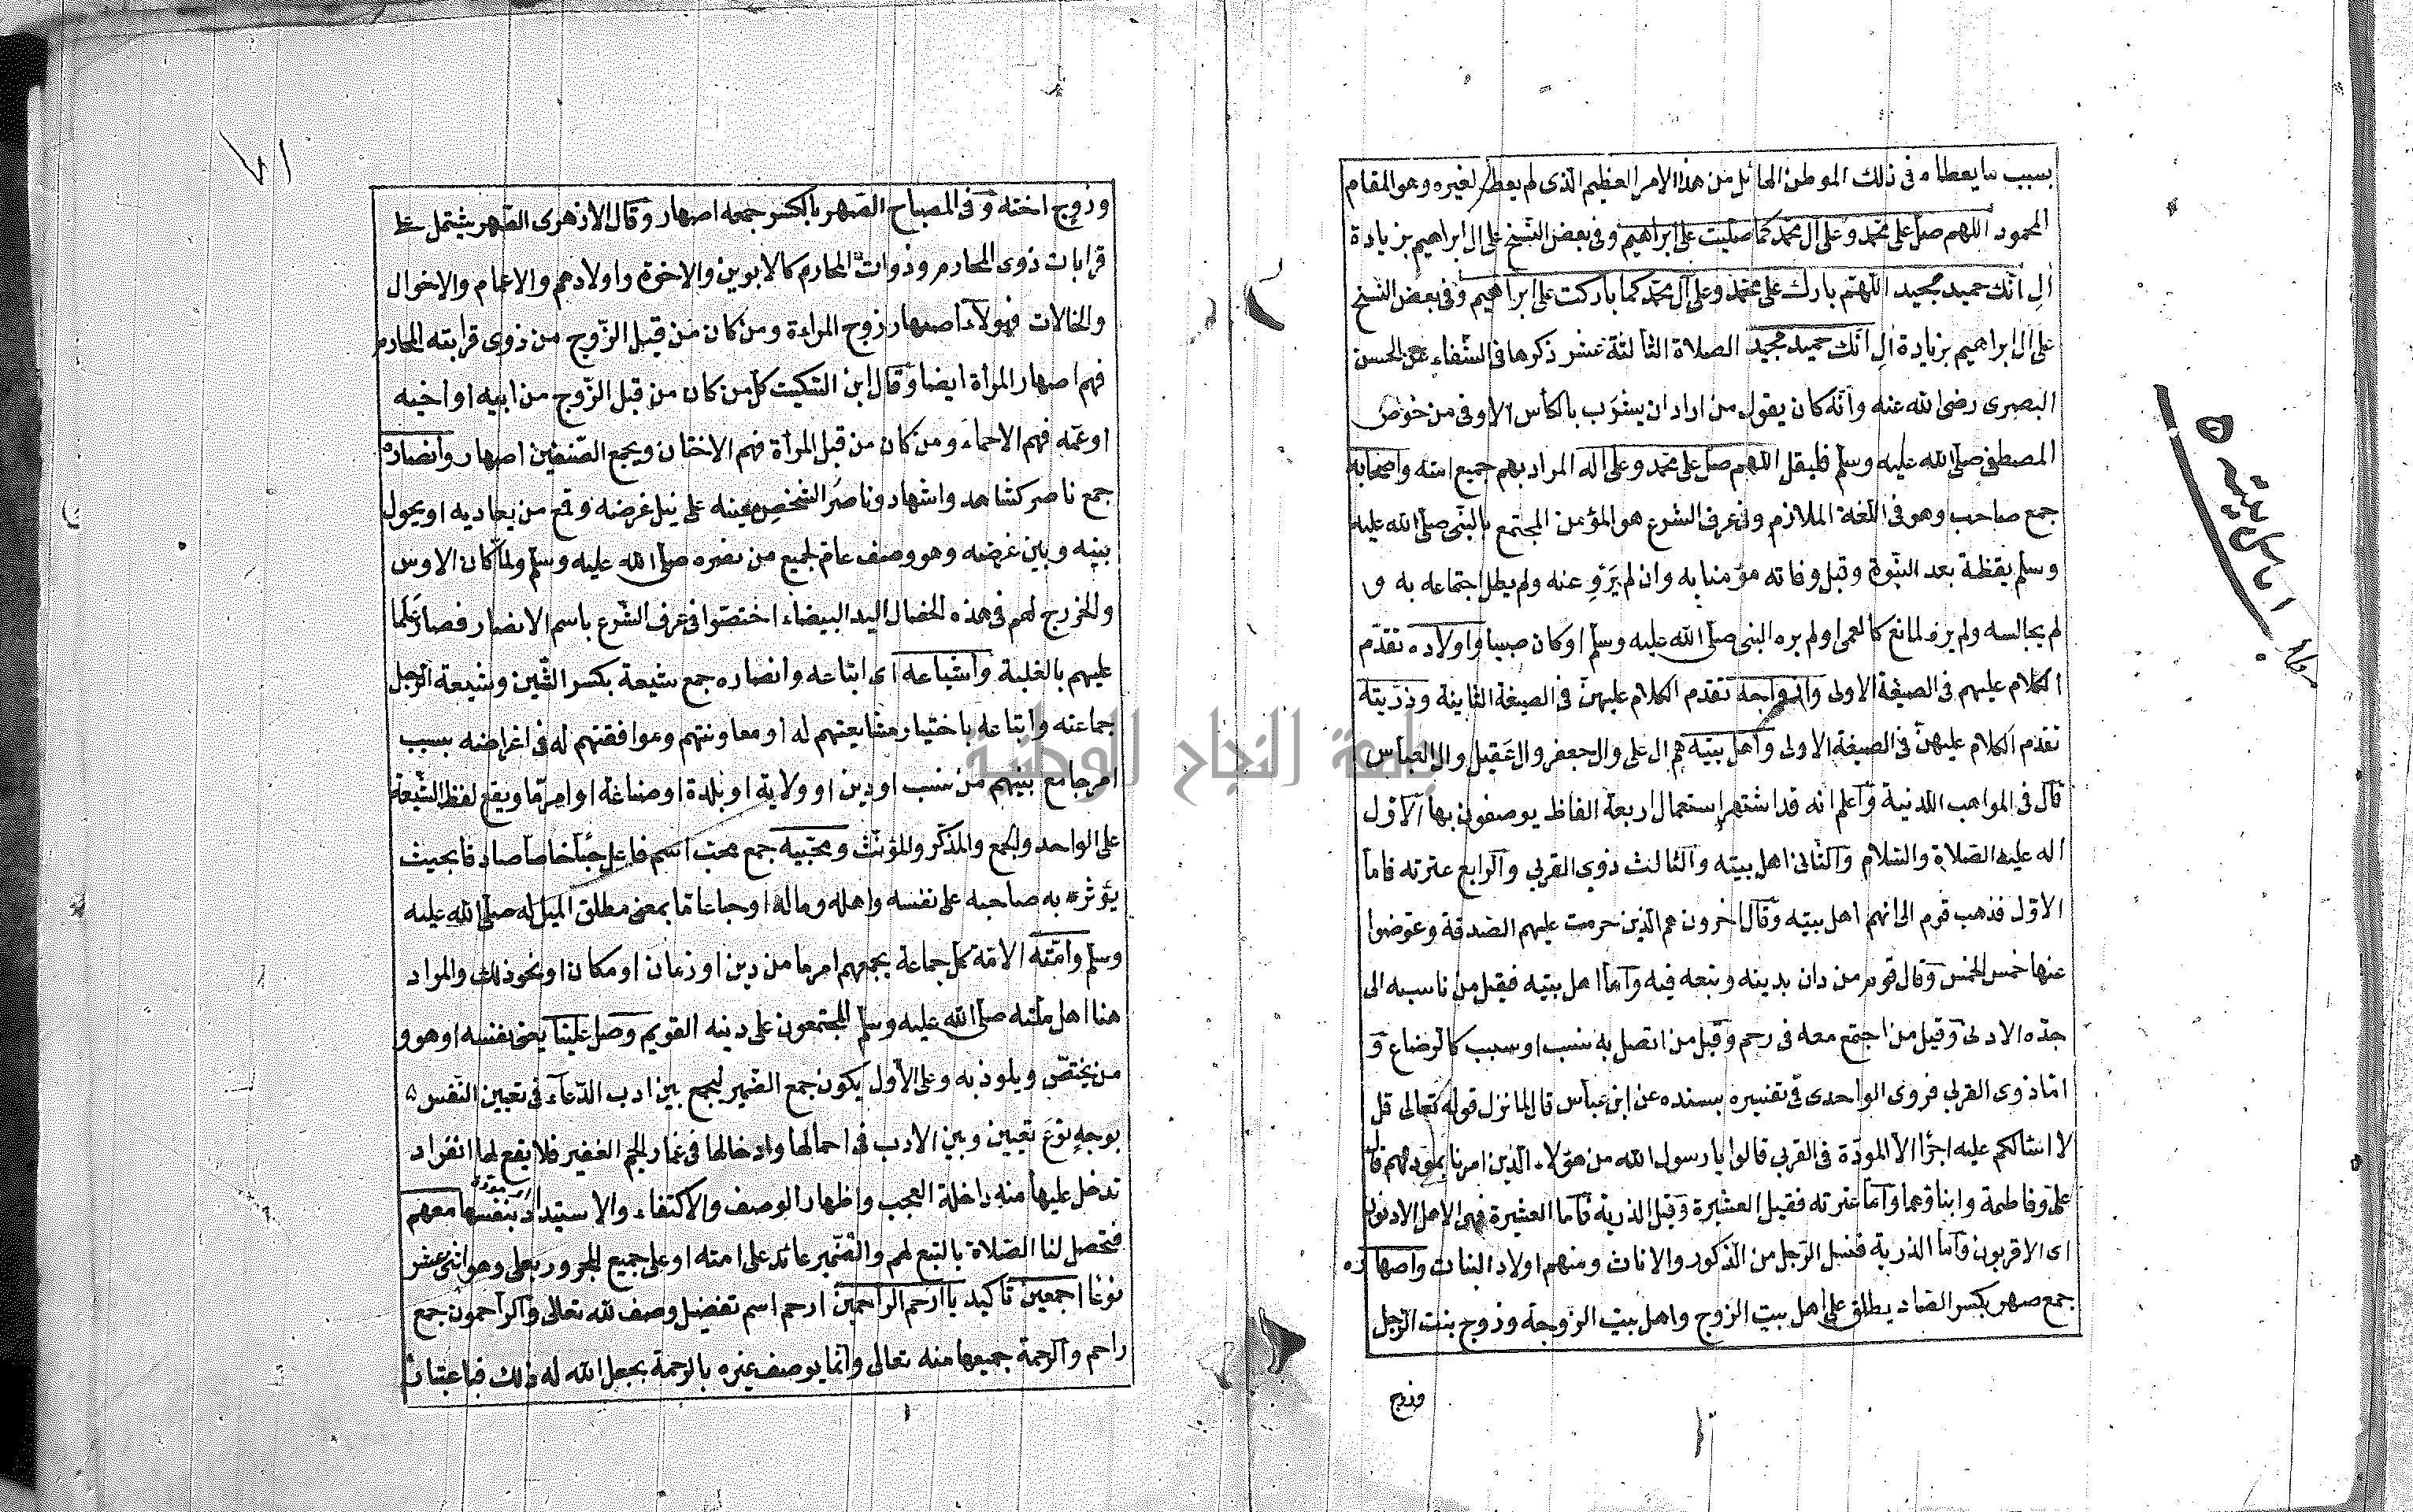 بسبب ما يعطاه فى ذلك الموطن الهائل من هذا الامر العظيم الّذى لم يعطه لغيره وهو المقام
المحمود اللهم صلّ على محمّد وعلى ال محمّد كما صليت على ابراهيم وفى بعض النّسخ على ال ابراهيم بزيادة
الِ انّك حميد مجيد اللهمّ بارك على محمّد وعلى آل محمّد كما باركت على ابراهيم وفى بعض النسخ
على ال ابراهيم بزيادة الِ انّك حميد مجيد الصلاة الثالثة عشر ذكرها فى الشّفاء عن الحسن
البصرى رضى الله عنه وانّه كان يقول من اراد ان يشرَب بالكأس الاوفى من حوض
المصطفى صلّى الله عليه وسلّم فليقل اللهم صلّ على محمّد وعلى اله المراد بهم جميع امته واصحابه
جمع صاحب وهو فى اللّغة الملازم وفى عرف الشرع هو المؤمن المجتمع بالنّبى صلّى الله عليه
وسلم يقظة بعد النبّوة وقبل وفاته مؤمنا به وان لم يَرْوِ عنه ولم يطل اجتماعه به و
لم يجالسه ولم يره لمانع كالعمى او لم يره النبى صلّى الله عليه وسلّم او كان صبيا واولاده تقدّم
الكلام عليهم فى الصيغة الاولى وازواجه تقدم الكلام عليهنّ فى الصيغة الثانية وذرّيته
تقدّم الكلام عليهنّ فى الصيغة الاولى واهل بيته هم ال على وال جعفر وال عَقيل وال العبّاس
قال فى المواهب اللّدنية واعلم انه قد اشتهر استعمال اربعة الفاظ يوصفون بها الاوّل
اله عليه الصّلاة والسّلام والثّانى اهل بيته والثالث ذوى القربى والرابع عترته فاما
الاوّل فذهب قوم الى انهم اهل بيته وقال اخرون هم الّذين حرمت عليهم الصّدقة وعوّضوا
عنها خمس الخمس وقال قوم من دان بدينه وتبعه فيه وامّا اهل بيته فقيل من ناسبه الى
جدّه الادنى وقيل من اجتمع معه فى رحم وقيل من اتصل به بنسب او سبب كالرّضاع و
امّا ذوى القربى فروى الواحدى فى تفسيره بسنده عن ابن عبّاس قال لما نزل قوله تعالى قل
لا اسئالكم عليه اجرًا الا المودّة فى القربى قالوا يا رسول الله من هؤلاء الّذين امرنا بمودّتهم قال
علىّ وفاطمة وابناؤهما وامّا عترته فقيل العشيرة وقيل الذرية فاما العشيرة فهى الاهل الادنون
اى الاقربون وامّا الذرية فنسل الرّجل من الذكور والاناث ومنهم اولاد البنات واصهاره
جمع صهر بكسر الصّاد يطلق على اهل بيت الزوج واهل بيت الزّوجة وزوج بنت الرّجل
وزوج
وزوج اخته وفى المصباح الصّهر بالكسر جمعه اصهار وقال الازهرى الصّهر يشتمل على
قرابات ذوى المحارم وذوات المحارم كالابوين والاخوة واولادهم والاعمام والاخوال
والخالات فهولاء اصهار زوج المراءة ومن كان من قبل الزّوج من ذوى قرابته المحارم
فهم اصهار المرأة ايضا وقال ابن السّكيت كلّ من كان من قبل الزّوج من ابيه او اخيه
او عمّه فهم الاحماء ومن كان من قبل المرأة فهم الاختان ويجمع الصّنفين اصهار وانصاره
جمع ناصر كشاهد واشهاد وناصر الشخصِ معينه على نيل غرضه وقمع من يعاديه او يحول
بينه وبين غرضه وهو وصف عام لجميع من نصره صلّى الله عليه وسلم ولمّا كان الاوس
والخزرج لهم فى هذه الخصال اليد البيضاء اختصّوا فى عرف الشّرع باسم الانصار فصار عَلَما
عليهم بالغلبة واشياعه اى اتباعه وانصاره جمع شيعة بكسر الشّين وشيعة الرّجل
جماعته واتباعه باختيار مشايعتهم له او معاونتهم وموافقتهم له فى اغراضه بسبب
امر جامع بينهم من نسب او دين او ولاية او بلدة او صناعة او امر مّا ويقع لفظ الشّيعة
على الواحد والجمع والمذكّر والمؤنّث ومحبّيه جمع محبّ اسم فاعل حبّا خاصا صادقا بحيث
يؤثره به صاحبه على نفسه واهله وماله او حبا عامّا بمعنى مطلق الميل له صلّى الله عليه
وسلّم وامّته الامّة كلّ جماعة يجمعهم امر ما من دين او زمان او مكان او نحو ذلك والمراد
هنا اهل ملّته صلّى الله عليه وسلّم المجتمعون على دينه القويم وصل علينا يعنى نفسه او هو و
من يختصّ ويلوذ به وعلى الاّول يكون جمع الضّمير ليجمع بين ادب الدّعاء فى تعيين النّفس
بوجهٍ نوع تعيين وبين الادب فى احمالها وادخالها فى غمار الجم الغفير فلا يقع لها انفراد
تدخل عليها منه داخلة العجب واظهار الوصف والاكتفاء والاستبداد بنفسها معهم
فتحصل لنا الصّلاة بالتبع لهم والضّمير عائد على امته او على جميع المجرور بعلى وهو اثنى عشر
نوعًا اجمعين تاكيد يا ارحم الراحمين ارحم اسم تفضيل وصف لله تعالى والرّاحمون جمع
راحم والرّحمة جميعها منه تعالى وانّما يوصف غيره بالرحمة بجعل الله له ذلك فباعتبار
جامعة النجاح الوطنية